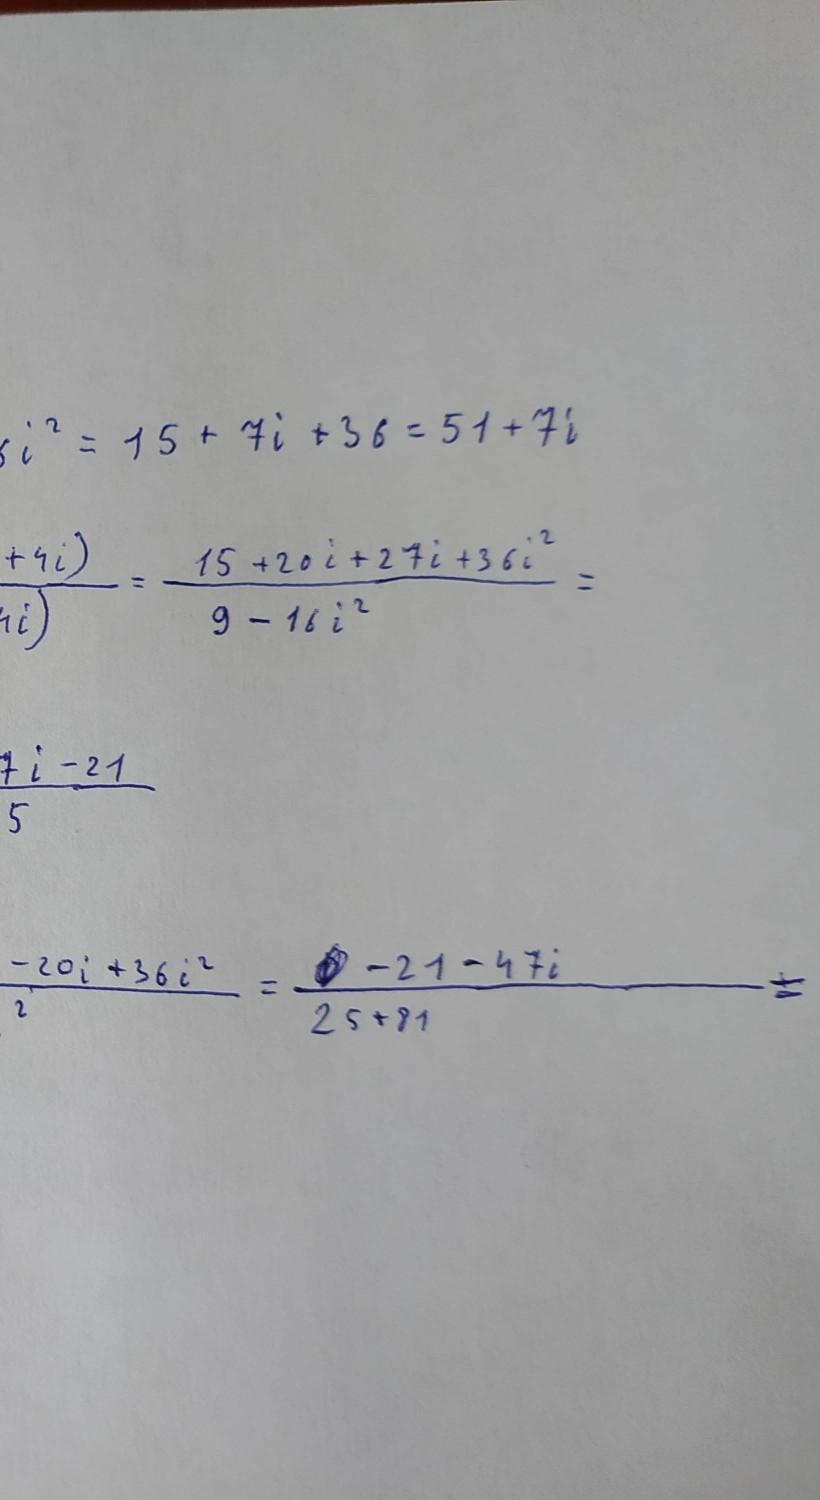 i² = 15 + 7i + 36 = 51 + 7i
+4i) = 15 + 20i + 27i + 36i² =
4i) 9 - 16i²
7i - 21
5
-20i + 36i² = -21 - 47i =
2 25 + 81